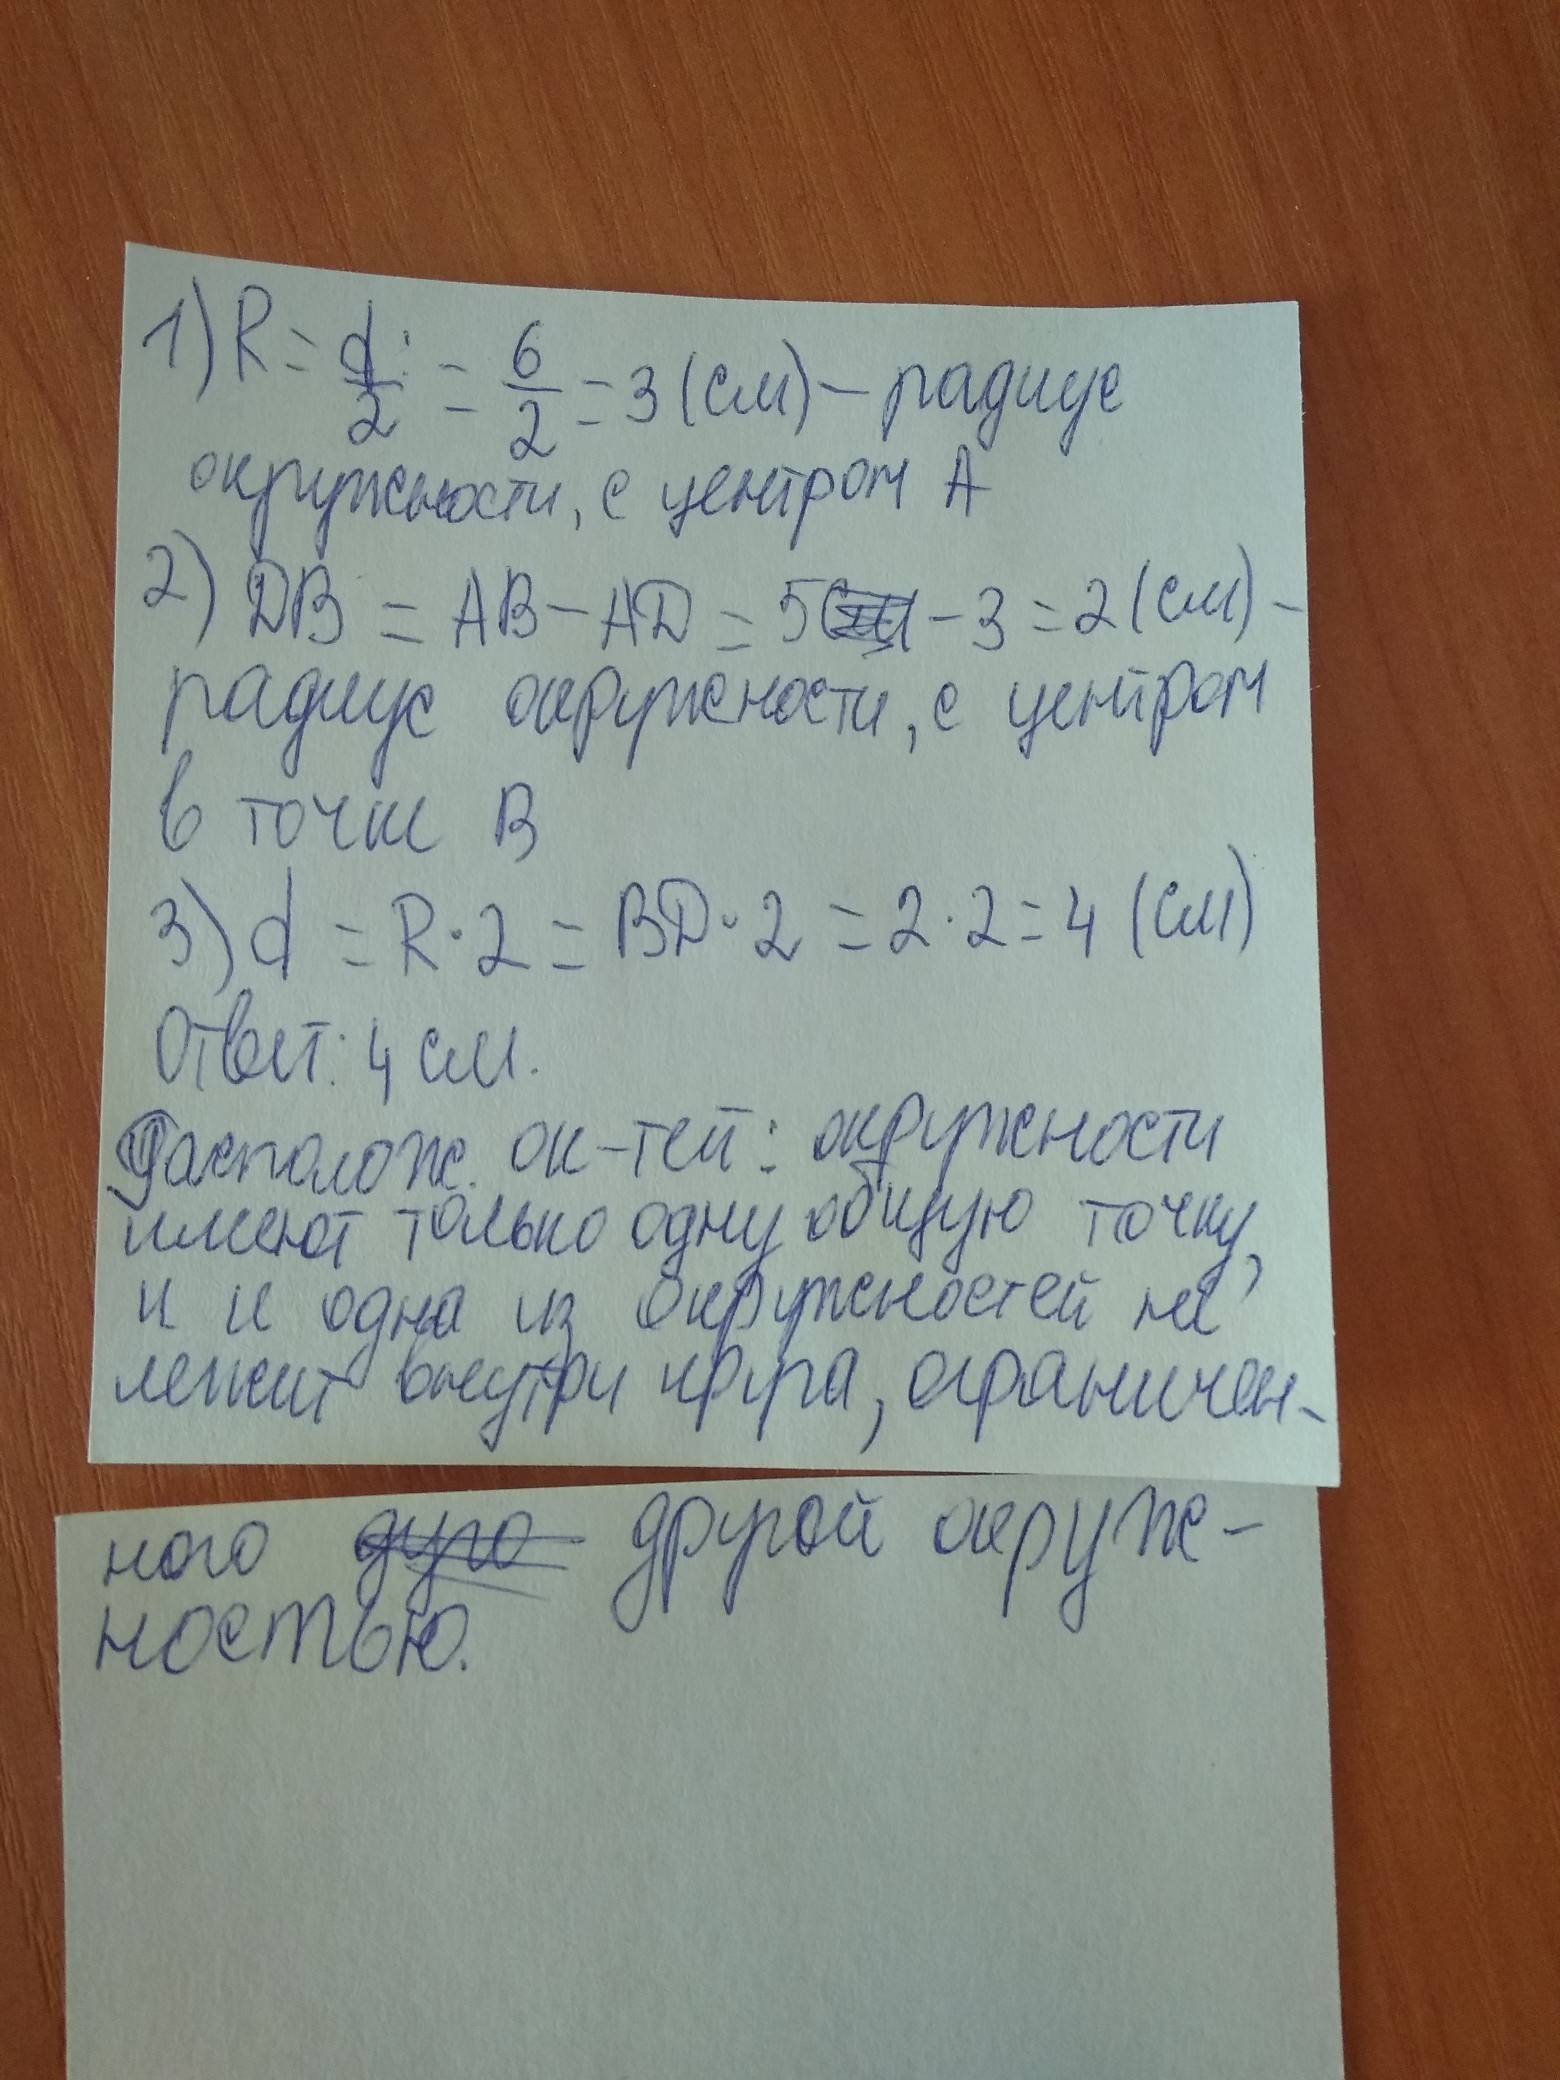 1) R = d/2 = 6/2 = 3 (см) – радиус
окружности, с центром А
2) DB = AB – AD = 5 – 3 = 2 (см) –
радиус окружности, с центром
в точке В
3) d = R · 2 = BD · 2 = 2 · 2 = 4 (см)
Ответ: 4 см.
Располож. ок-тей: окружности
имеют только одну общую точку,
и и одна из окружностей не
лежит внутри круга, ограничен-
ного другой окруж-
ностью.